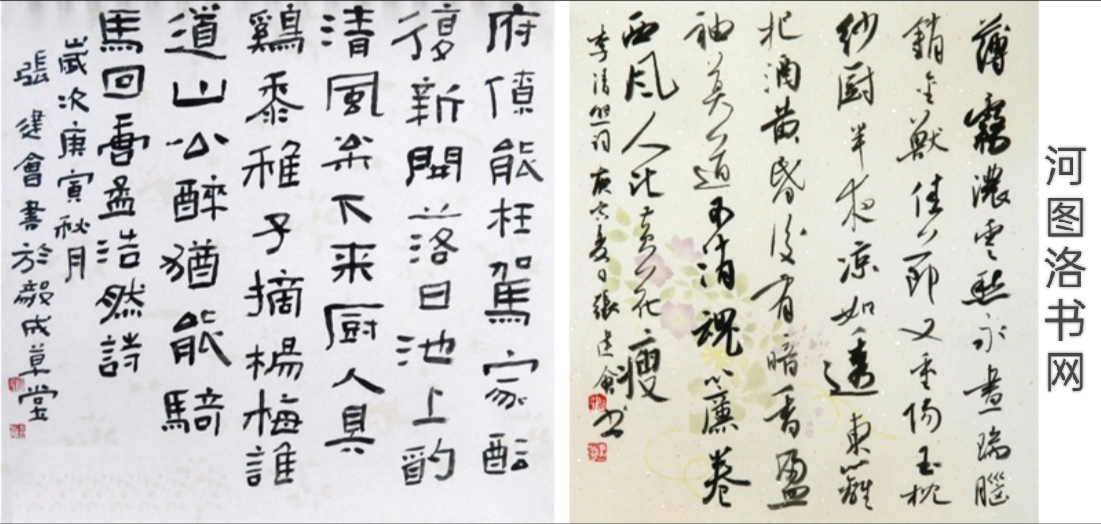 府僚能枉駕家酝
復新開落日池上酌
清風松下来厨人具
鷄黍稚子摘楊梅誰
道山公醉猶能騎
馬回書孟浩然詩
歲次庚寅秋月
張建會書於毅成草堂
薄霧濃雲愁永晝瑞腦
銷金獸佳節又重陽玉枕
紗厨半夜凉如透東籬
把酒黄昏後有暗香盈
袖莫道不消魂簾卷
西风人比黄花瘦
李清照詞庚寅夏日張建會书
河图洛书网